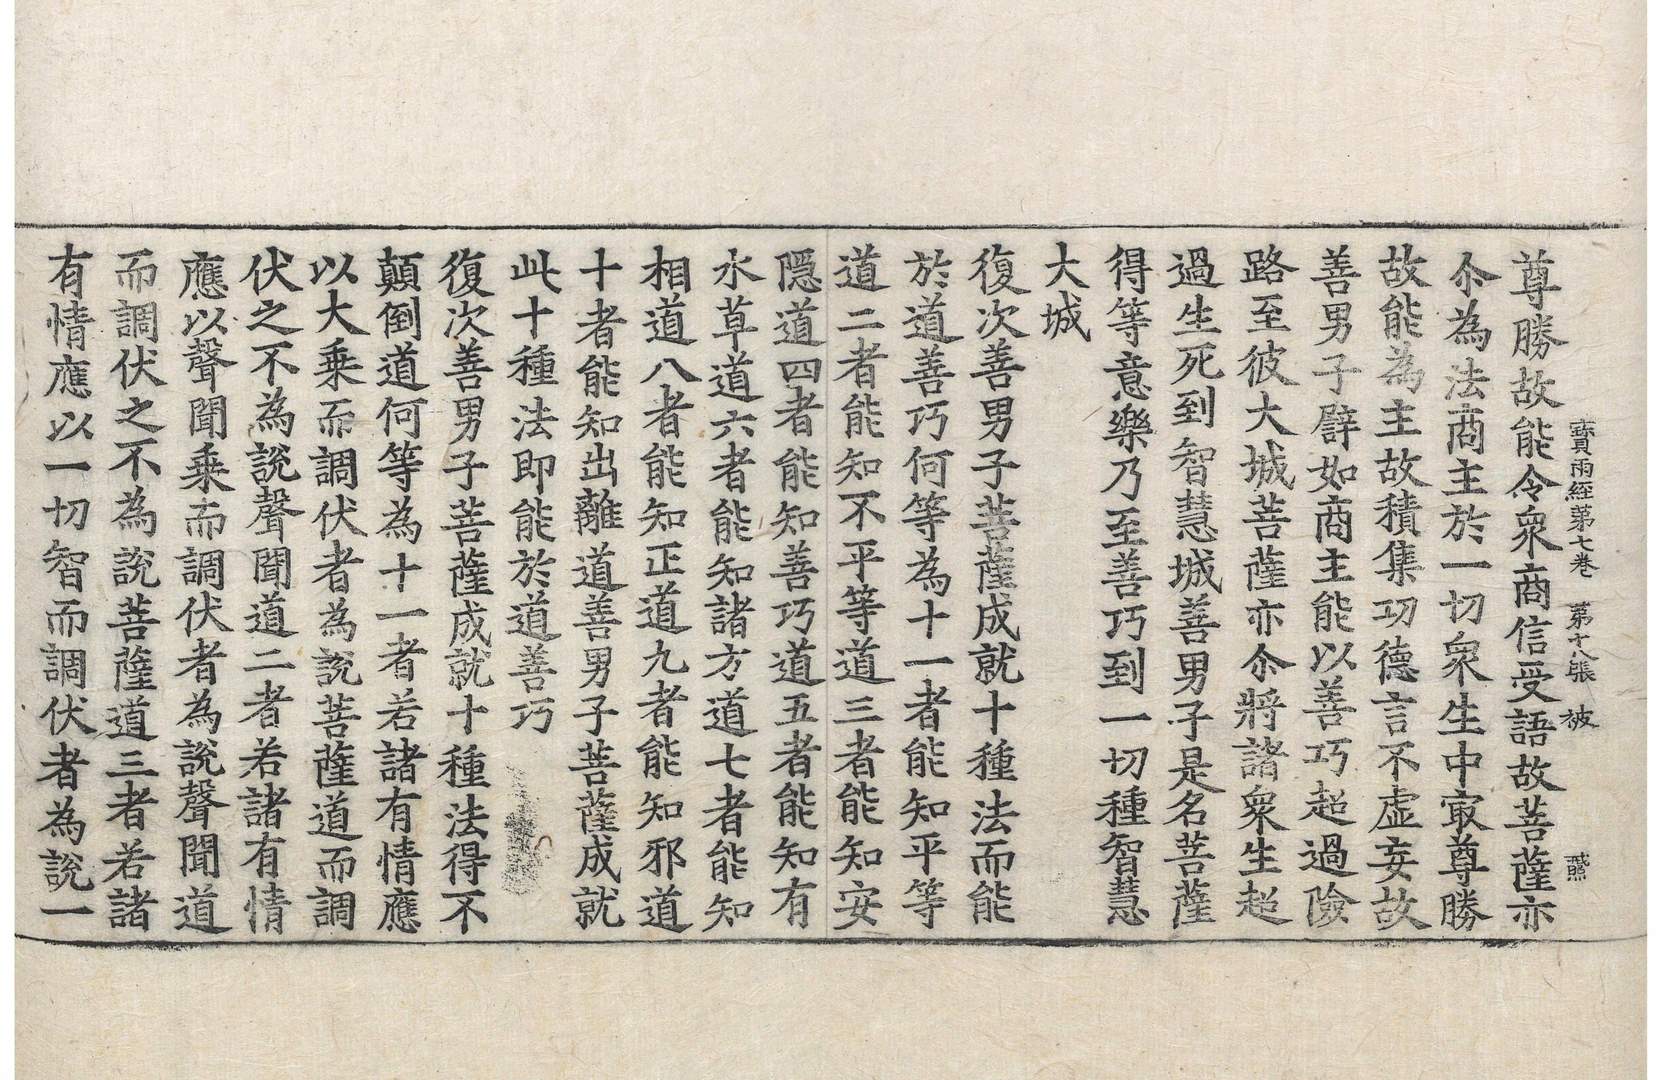 寶雨經第七卷 第十八張 被
尊勝故能令衆商信受語故菩薩亦
尒為法商主於一切衆生中㝡尊勝
故能為主故積集功德言不虛妄故
善男子譬如商主能以善巧超過險
路至彼大城菩薩亦尒將諸衆生超
過生死到智慧城善男子是名菩薩
得等意樂乃至善巧到一切種智慧
大城
復次善男子菩薩成就十種法而能
於道善巧何等為十一者能知平等
道二者能知不平等道三者能知安
隱道四者能知善巧道五者能知有
水草道六者能知諸方道七者能知
相道八者能知正道九者能知邪道
十者能知出離道善男子菩薩成就
此十種法即能於道善巧
復次善男子菩薩成就十種法得不
顛倒道何等為十一者若諸有情應
以大乘而調伏者為說菩薩道而調
伏之不為說聲聞道二者若諸有情
應以聲聞乘而調伏者為說聲聞道
而調伏之不為說菩薩道三者若諸
有情應以一切智而調伏者為說一